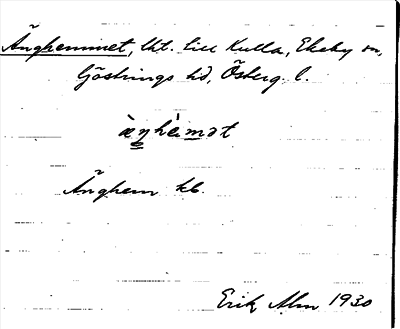 Änghemmet, lht. till Kulla, Ekeby sn,
Göstrings hd, Österg. l.
æ̀ŋhèmət
Änghem kb.
Erik Alm 1930